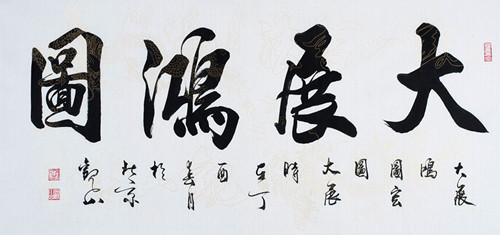 大展鴻圖
大展
鴻
圖宏
圖
大展
時
在丁
酉
春月
於
北京